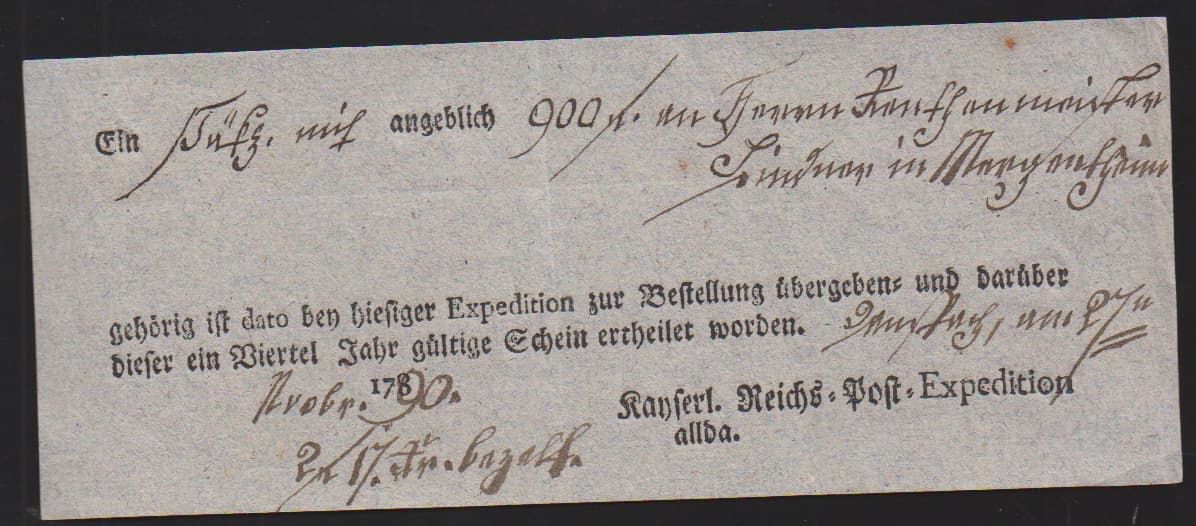 Ein Päktz. mit angeblich 900 f. an Herrn Renthenmeister
Lindner in Mergentheim
gehörig ist dato bey hiesiger Expedition zur Bestellung übergeben- und darüber
dieser ein Viertel Jahr gültige Schein ertheilet worden. am 27n
Novbr. 1790.
Kayserl. Reichs-Post-Expedition
allda.
bezalt.